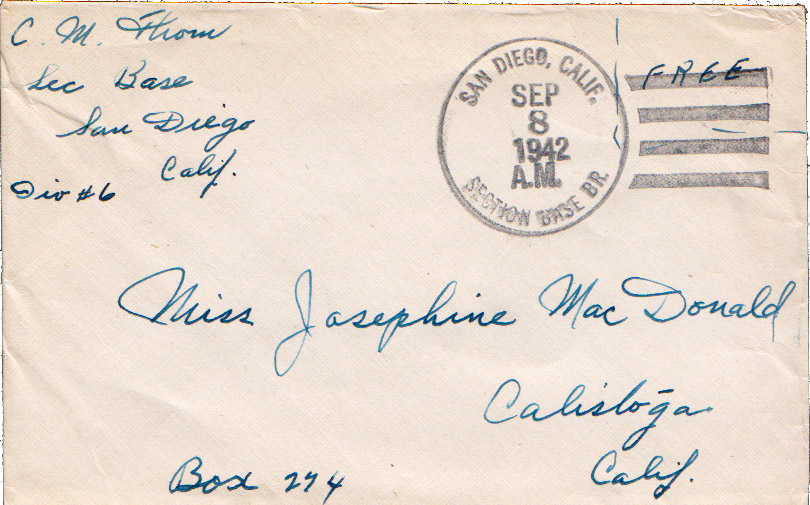 C. M. Thom
Sec Base
San Diego
Calif.
Div #6
SAN DIEGO, CALIF.
SEP
8
1942
A.M.
SECTION BASE BR.
FREE
Miss Josephine MacDonald
Calistoga
Calif.
Box 274